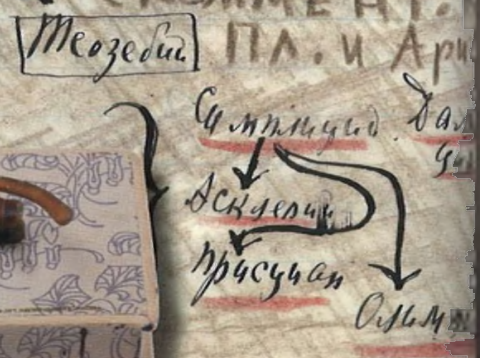 КОММЕНТ.
Теозебий
ПЛ. и Ари
Симплиций Дам
ци
Асклепий
Присциан
Олимп